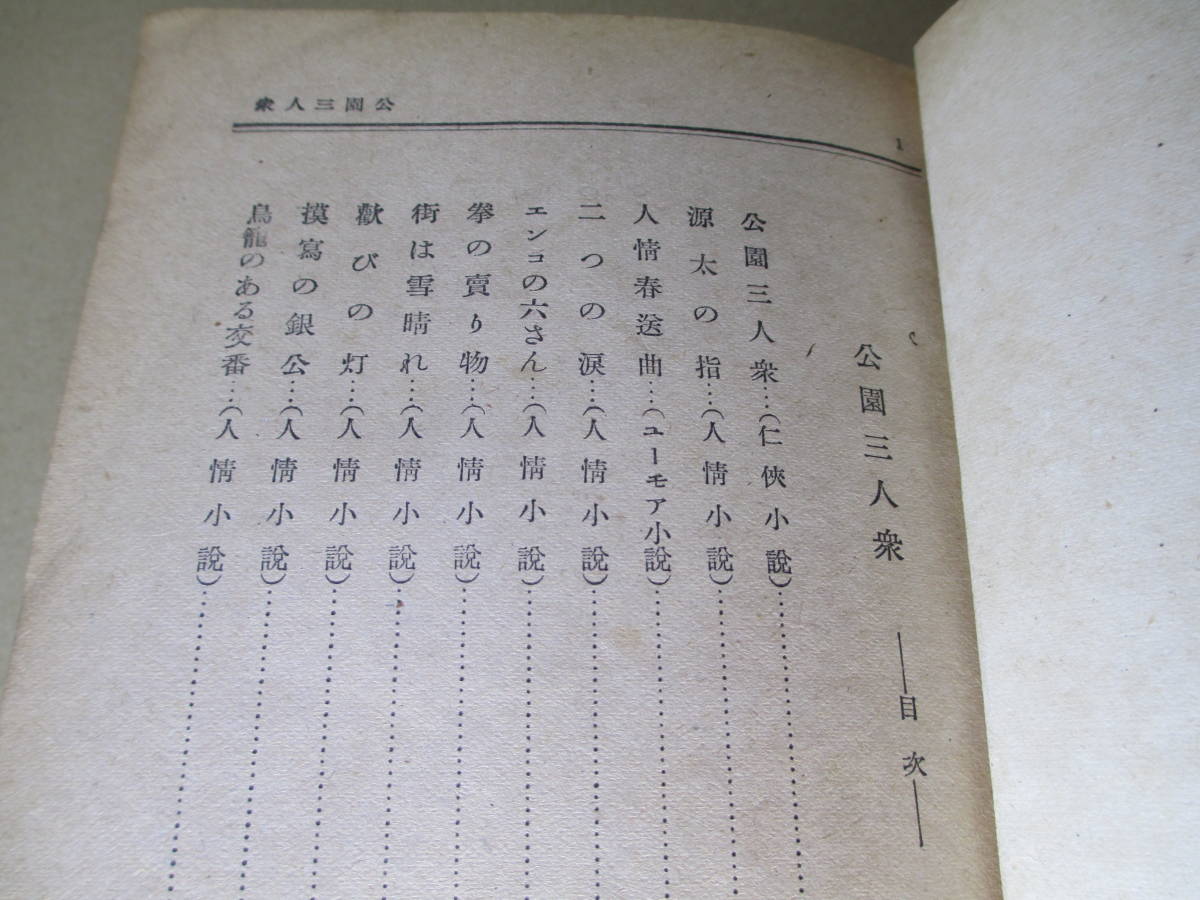 公園三人衆
1
公園三人衆 ――目次――
公園三人衆…(仁俠小說)
源太の指…(人情小說)
人情春送曲…(ユーモア小說)
二つの淚…(人情小說)
エンコの六さん…(人情小說)
拳の賣り物…(人情小說)
街は雪晴れ…(人情小說)
歡びの灯…(人情小說)
摸寫の銀公…(人情小說)
鳥籠のある交番…(人情小說)